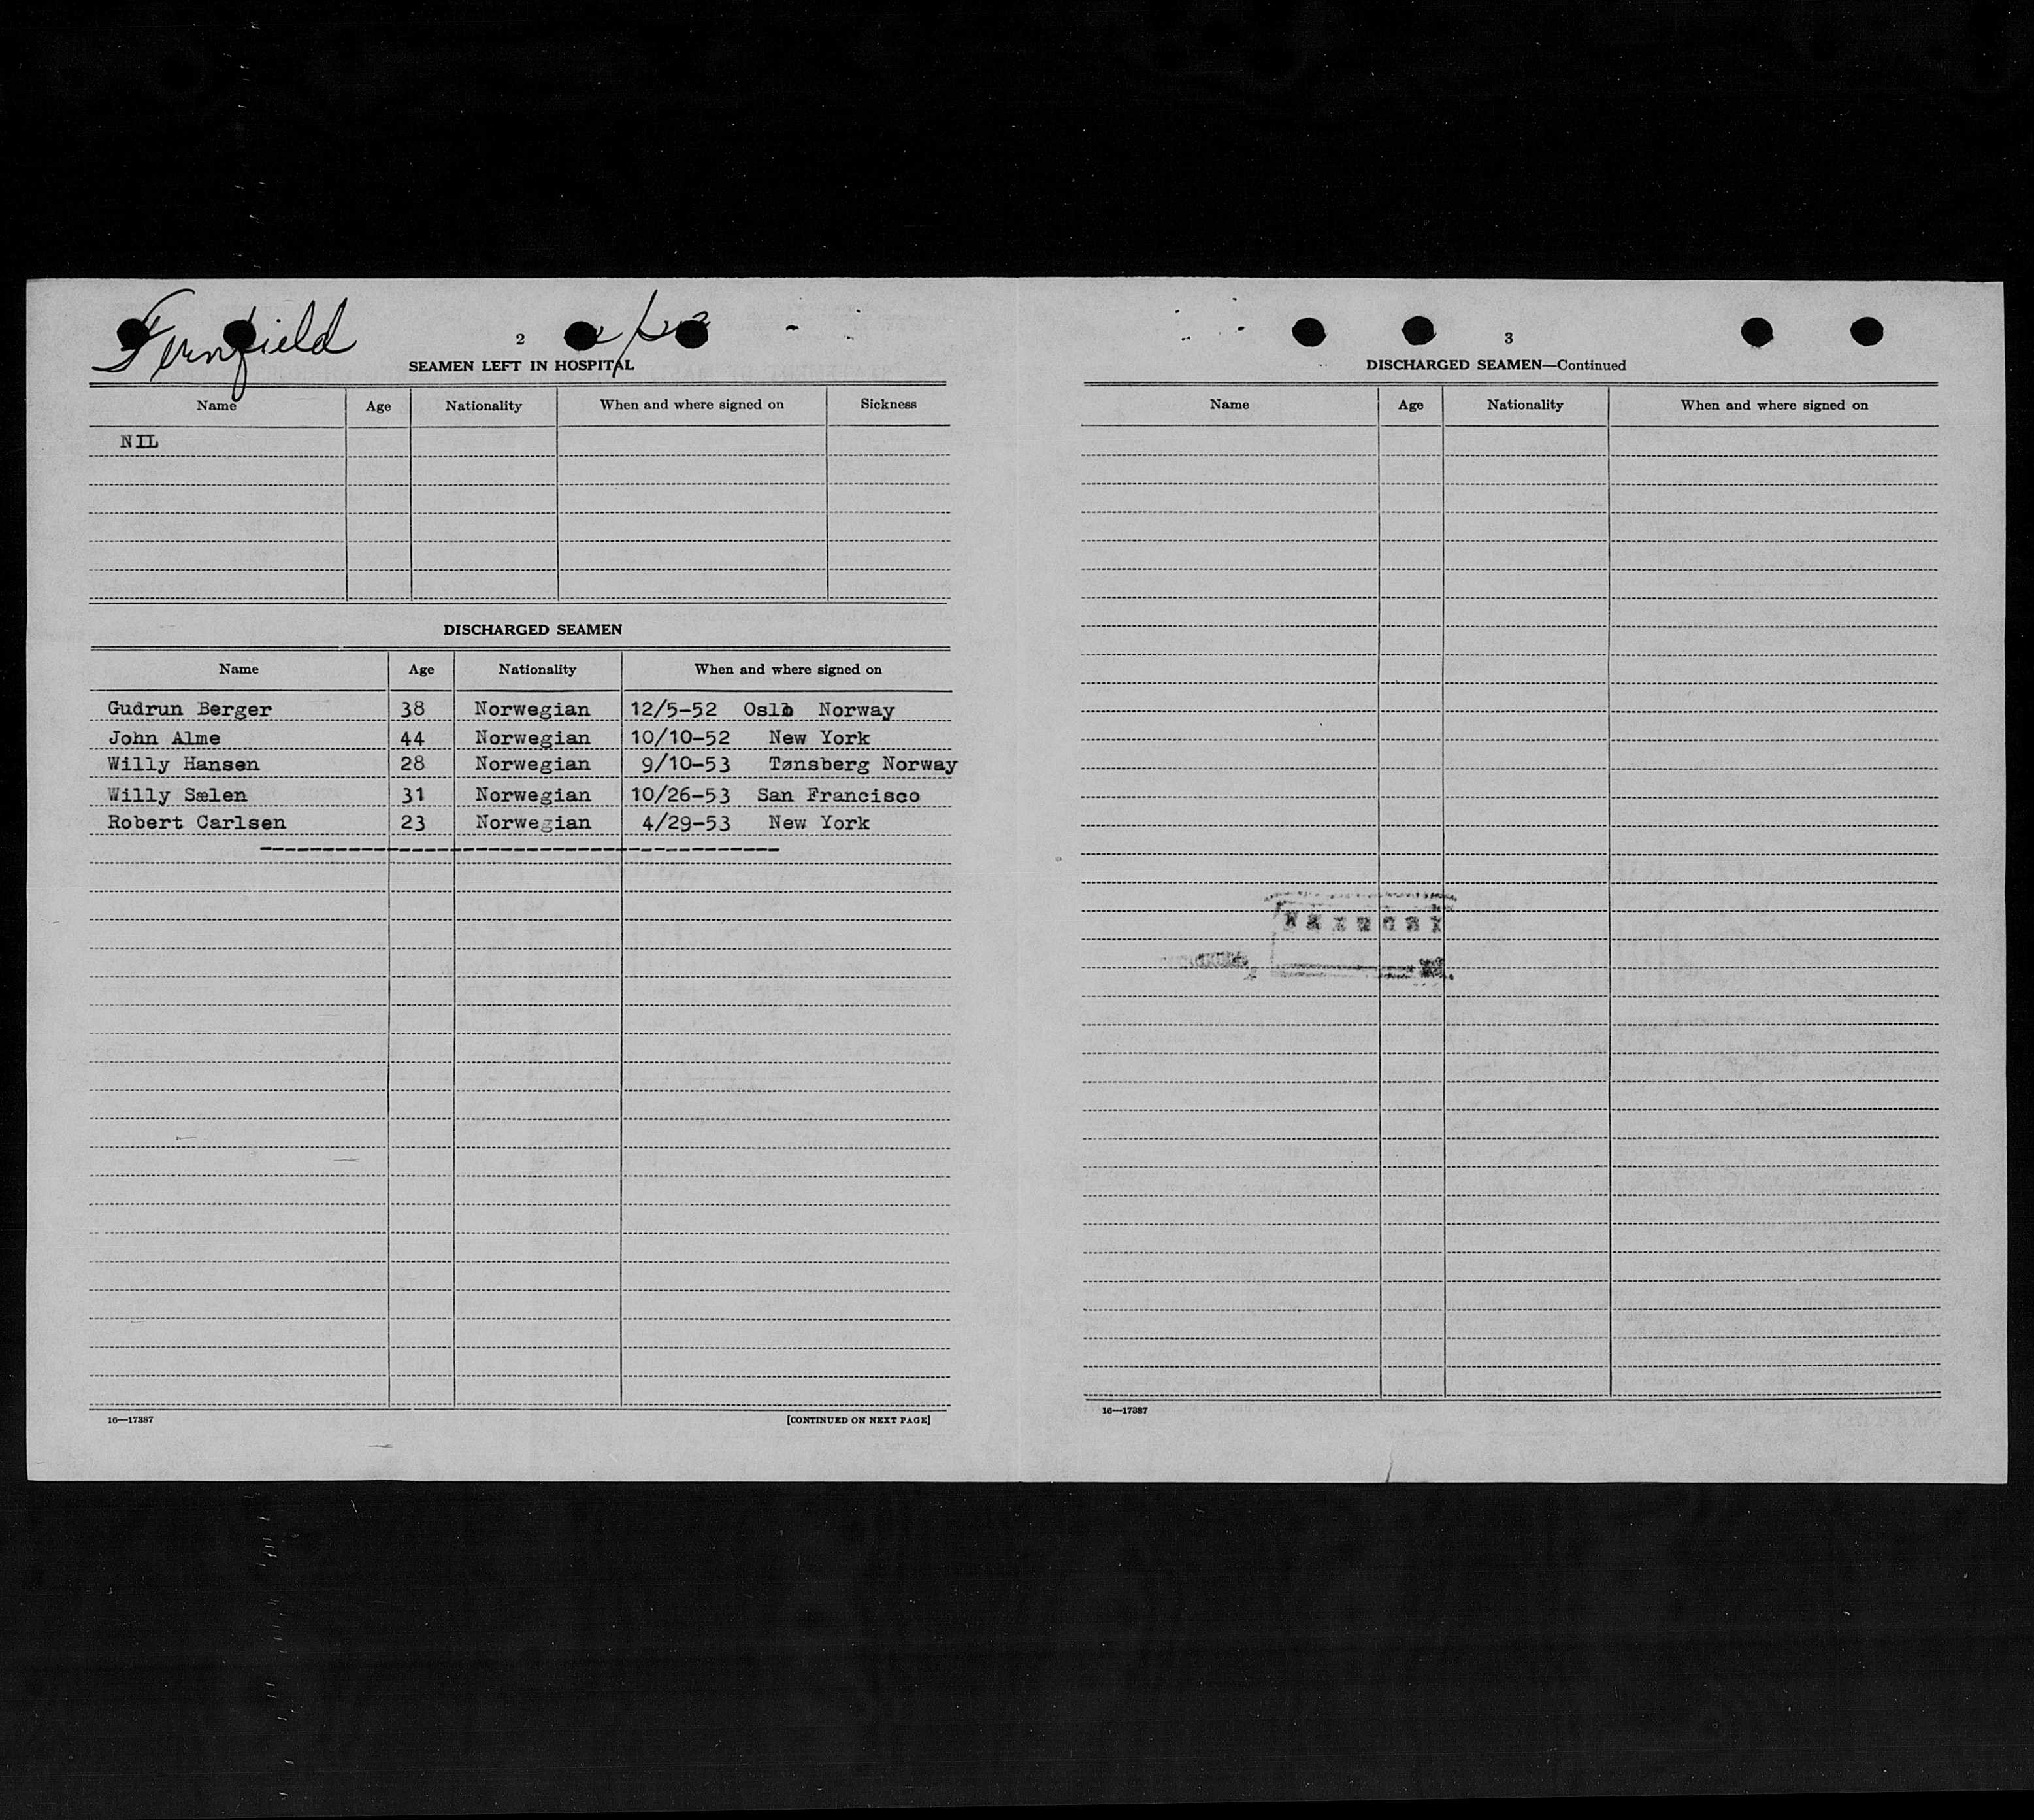 Fernfield
2
SEAMEN LEFT IN HOSPITAL
Name Age Nationality When and where signed on Sickness
NIL
DISCHARGED SEAMEN
Name Age Nationality When and where signed on
Gudrun Berger 38 Norwegian 12/5-52 Oslo Norway
John Alme 44 Norwegian 10/10-52 New York
Willy Hansen 28 Norwegian 9/10-53 Tønsberg Norway
Willy Sælen 31 Norwegian 10/26-53 San Francisco
Robert Carlsen 23 Norwegian 4/29-53 New York
16—17387 [CONTINUED ON NEXT PAGE]
3
DISCHARGED SEAMEN—Continued
Name Age Nationality When and where signed on
16—17387